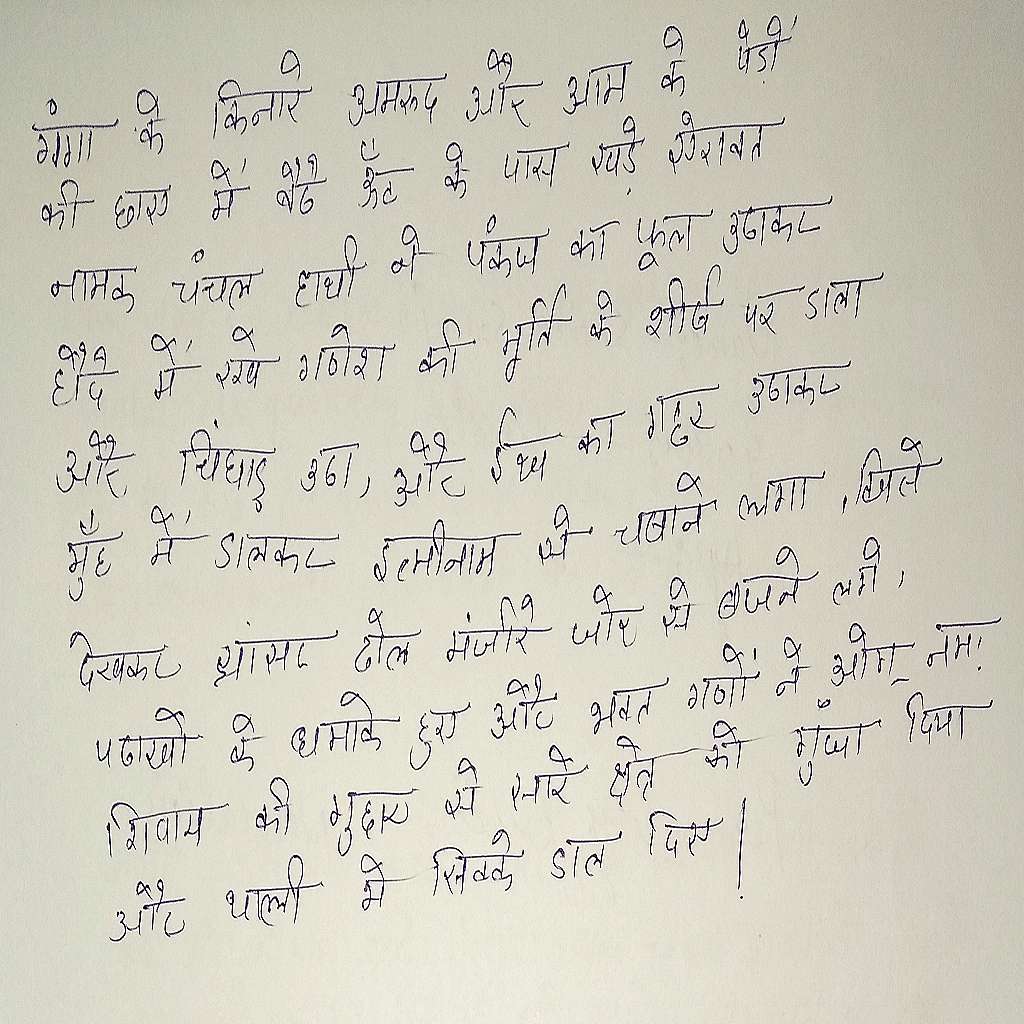 गंगा के किनारे अमरूद और आम के पेड़ों
की छाए में बैठे ऊँट के पास खड़े ऐरावत
नामक चंचल हाथी ने पंकज का फूल उठाकर
हौदे में रखे गणेश की मूर्ति के शीर्ष पर डाला
और चिंघाड़ उठा, और ईख का गट्ठर उठाकर
मुँह में डालकर इत्मीनाम से चबाने लगा, जिसे
देखकर झांसर ढोल मंजीरे जोर से बजने लगे,
पटाखों के धमाके हुए और भक्त गणों ने ओम् नमः
शिवाय की गुहार से सारे क्षेत्र को गुंजा दिया
और थाली में सिक्के डाल दिए।